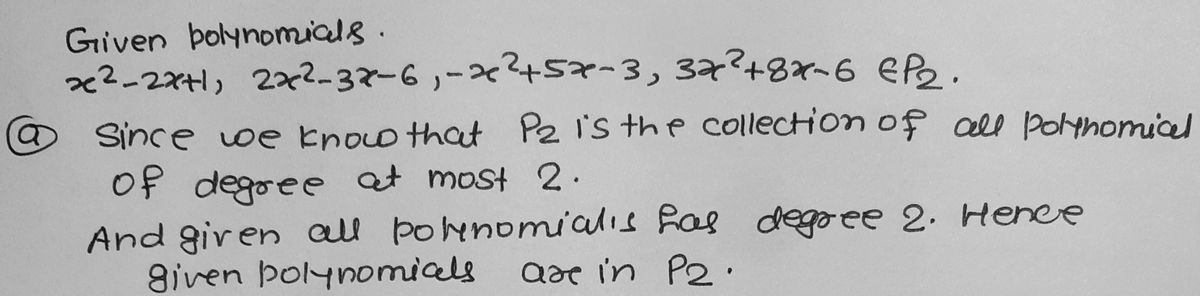 Given polynomials.
x²-2x+1, 2x²-3x-6, -x²+5x-3, 3x²+8x-6 ∈P₂.
ⓐ Since we know that P₂ is the collection of all polynomial
of degree at most 2.
And given all polynomials has degree 2. Hence
given polynomials are in P₂.